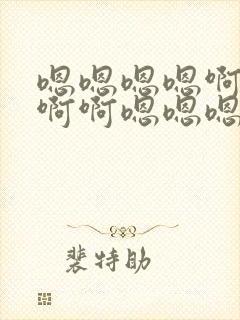 嗯嗯嗯嗯啊
啊啊嗯嗯嗯
裴特助